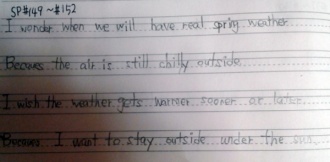 SP#149 ~#152
I wonder when we will have real spring weather.
Becaues the air is still chilly outside.
I wish the weather gets warmer sooner or later.
Becaues I want to stay outside under the sun.